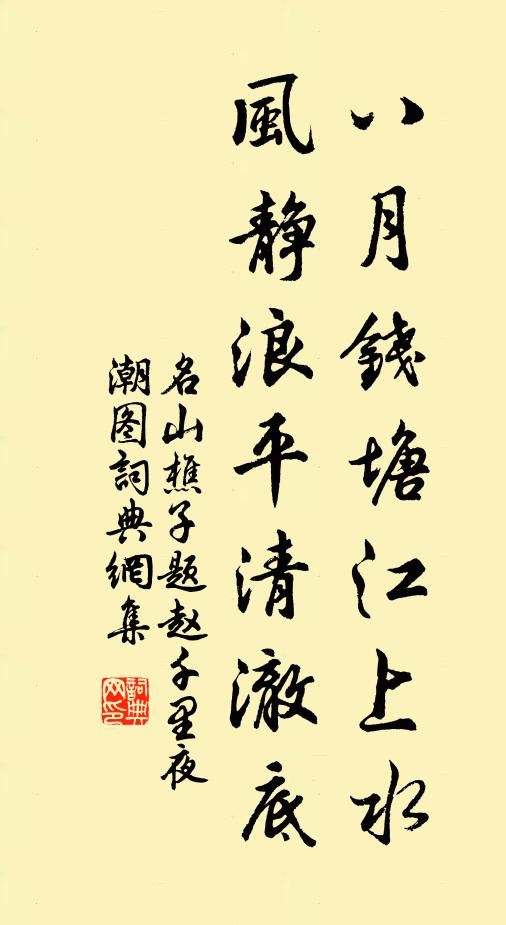 八月錢塘江上水
風靜浪平清澈底
名山樵子题赵千里夜
潮图詞典網集
詞典网印